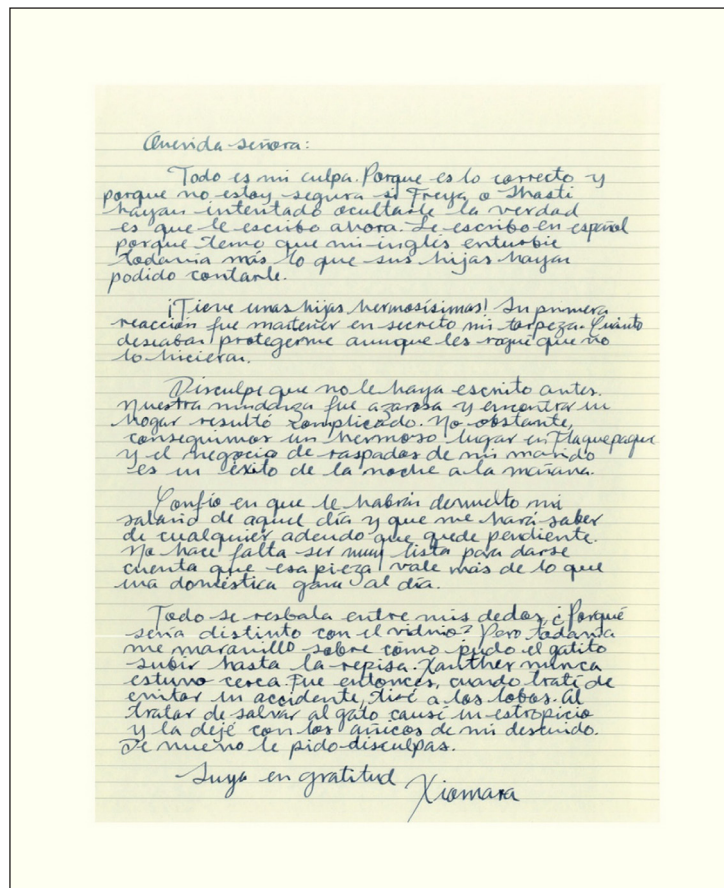 Querida señora:
Todo es mi culpa. Porque es lo correcto y
porque no estoy segura si Freya o Shasti
hayan intentado ocultarle la verdad
es que le escribo ahora. Le escribo en español
porque temo que mi inglés enturbie
todavía más lo que sus hijas hayan
podido contarle.
¡Tiene unas hijas hermosísimas! Su primera
reacción fue mantener en secreto mi torpeza. Cuánto
deseaban protegerme aunque les rogué que no
lo hicieran.
Disculpe que no le haya escrito antes.
Nuestra mudanza fue azarosa y encontrar un
hogar resultó complicado. No obstante,
conseguimos un hermoso lugar en Tlaquepaque
y el negocio de raspados de mi marido
es un éxito de la noche a la mañana.
Confío en que le habrán devuelto mi
salario de aquel día y que me hará saber
de cualquier adeudo que quede pendiente.
No hace falta ser muy lista para darse
cuenta que esa pieza vale más de lo que
una doméstica gana al día.
Todo se resbala entre mis dedos, ¿Porqué
sería distinto con el vidrio? Pero todavía
me maravillo sobre cómo pudo el gatito
subir hasta la repisa. Xanther nunca
estuvo cerca. Fue entonces, cuando traté de
evitar un accidente, tiré a los lobos. Al
tratar de salvar al gato causé un estropicio
y la dejé con los añicos de mi descuido.
De nuevo le pido disculpas.
Suya en gratitud
Xiomara